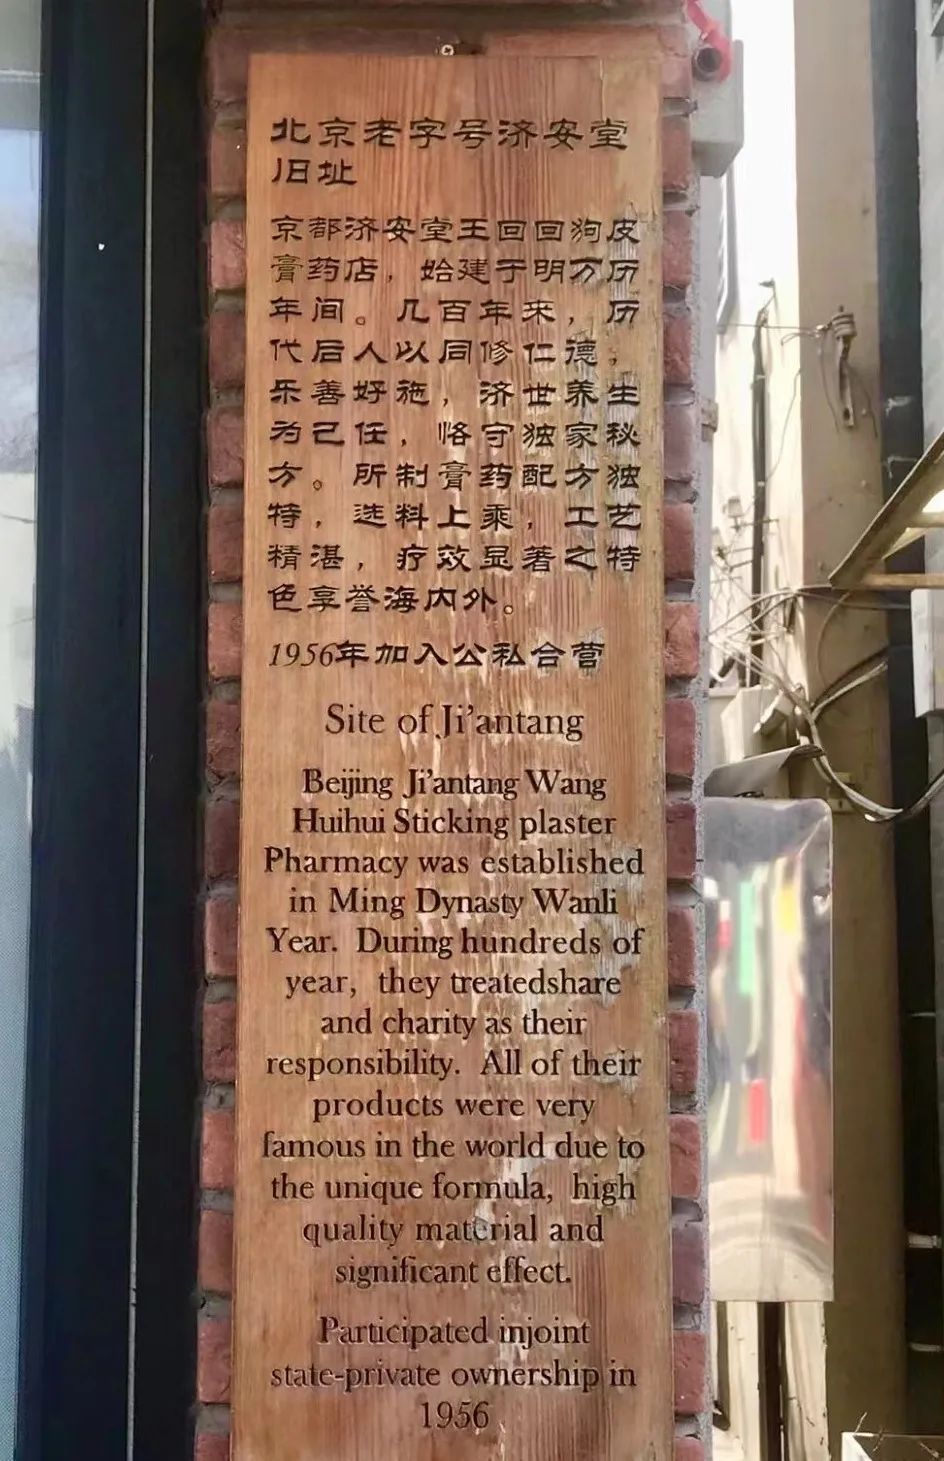 北京老字号济安堂
旧址
京都济安堂王回回狗皮
膏药店，始建于明万历
年间。几百年来，历
代后人以同修仁德，
乐善好施，济世养生
为己任，恪守独家秘
方。所制膏药配方独
特，选料上乘，工艺
精湛，疗效显著之特
色享誉海内外。
1956年加入公私合营
Site of Ji’antang
Beijing Ji’antang Wang
Huihui Sticking plaster
Pharmacy was established
in Ming Dynasty Wanli
Year. During hundreds of
year, they treatedshare
and charity as their
responsibility. All of their
products were very
famous in the world due to
the unique formula, high
quality material and
significant effect.
Participated injoint
state-private ownership in
1956